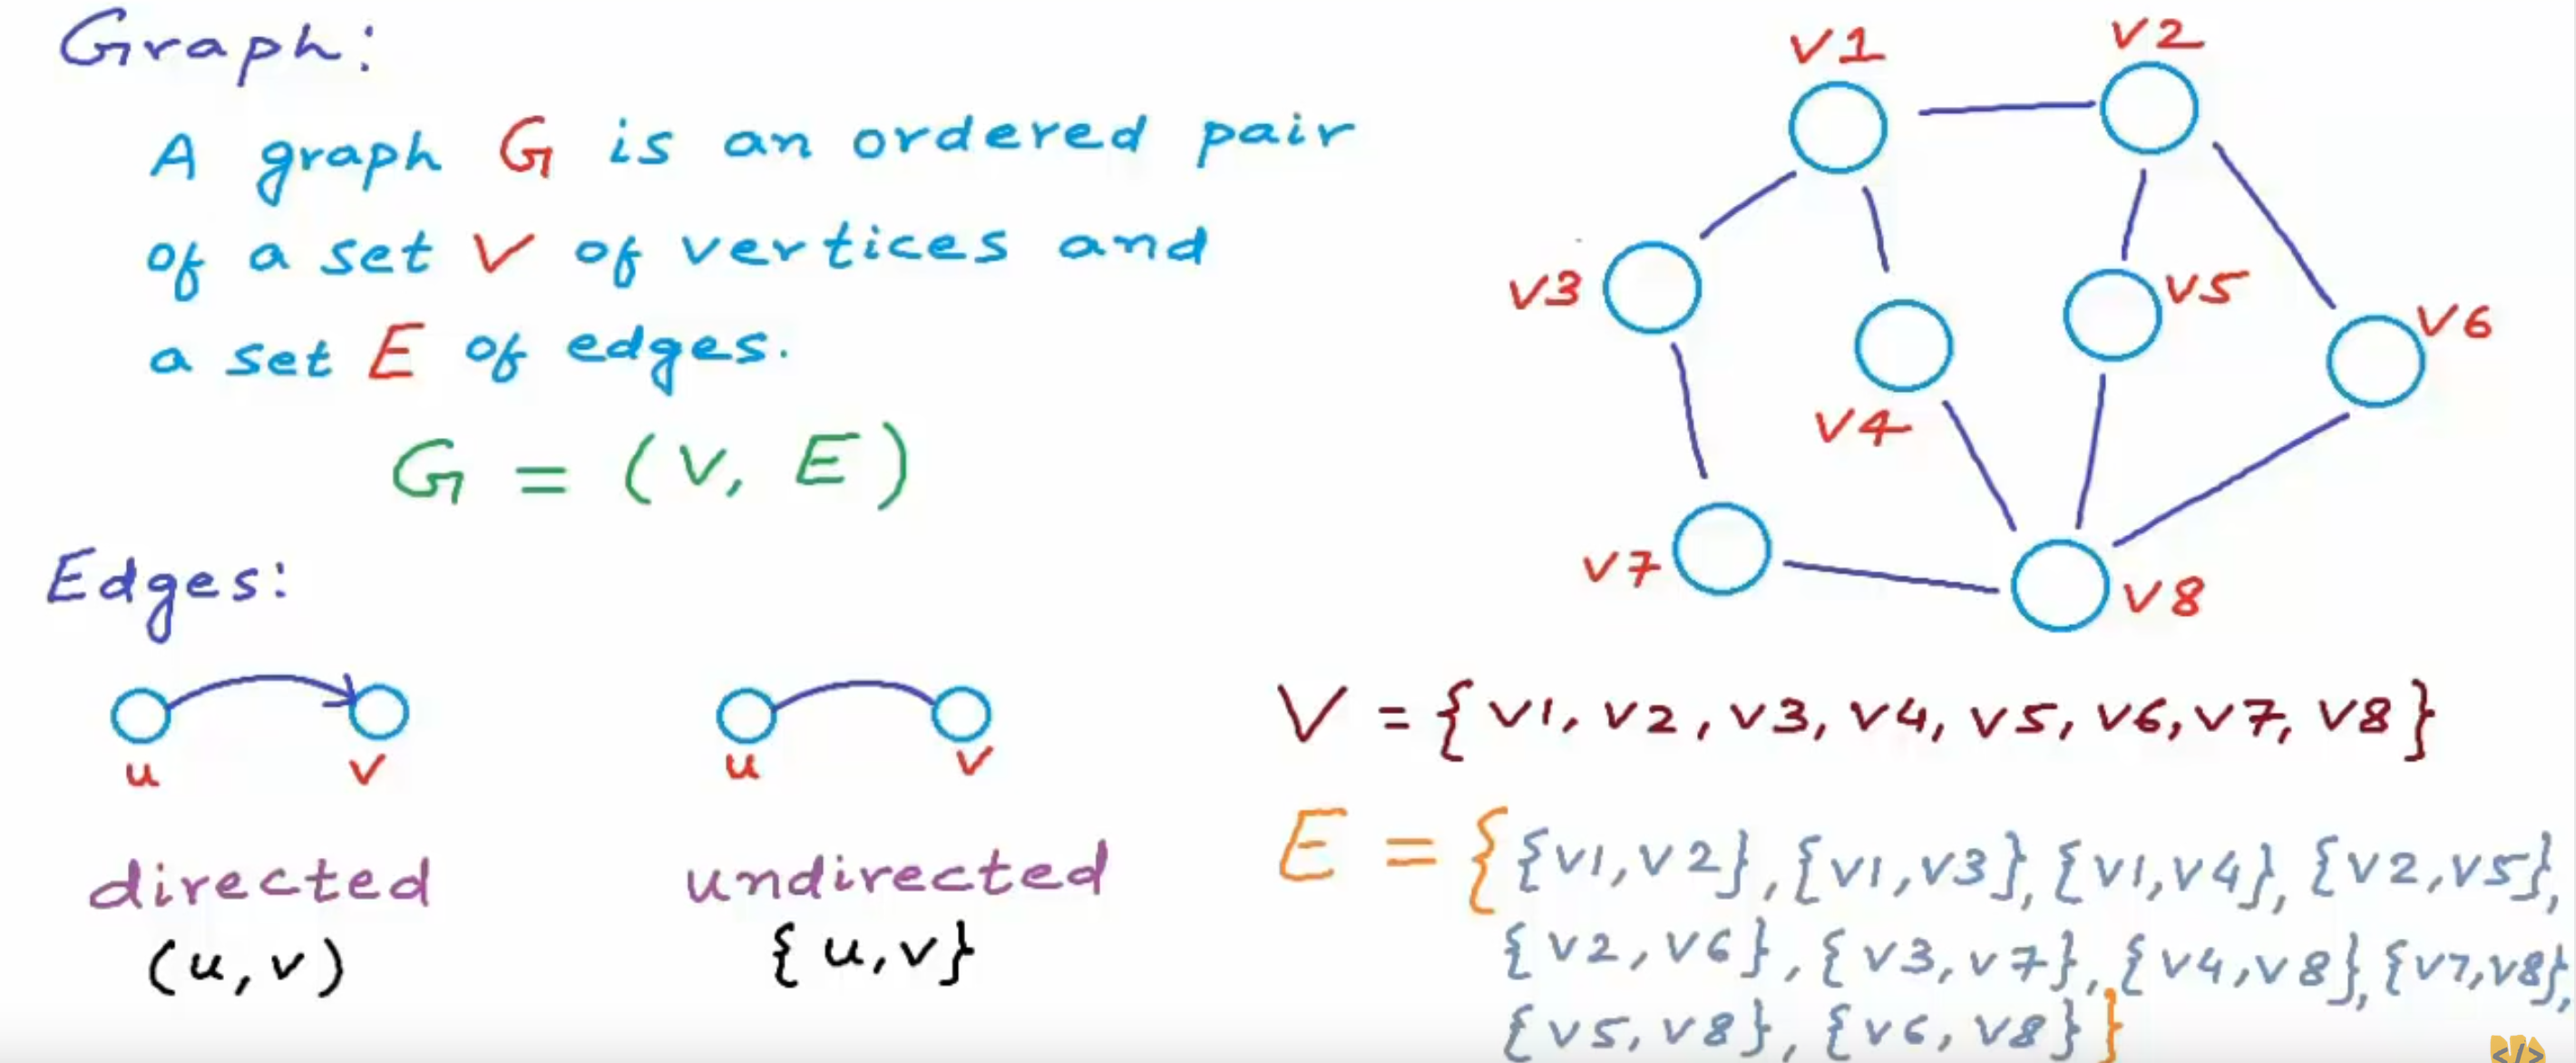 Graph:
A graph G is an ordered pair
of a set V of vertices and
a set E of edges.
G = (V, E)
Edges:
u
v
directed
(u,v)
u
v
undirected
{u,v}
v1
v2
v3
v4
v5
v6
v7
v8
V = {v1, v2, v3, v4, v5, v6, v7, v8}
E = {{v1,v2},{v1,v3},{v1,v4},{v2,v5},
{v2,v6},{v3,v7},{v4,v8},{v7,v8},
{v5,v8},{v6,v8}}
</>